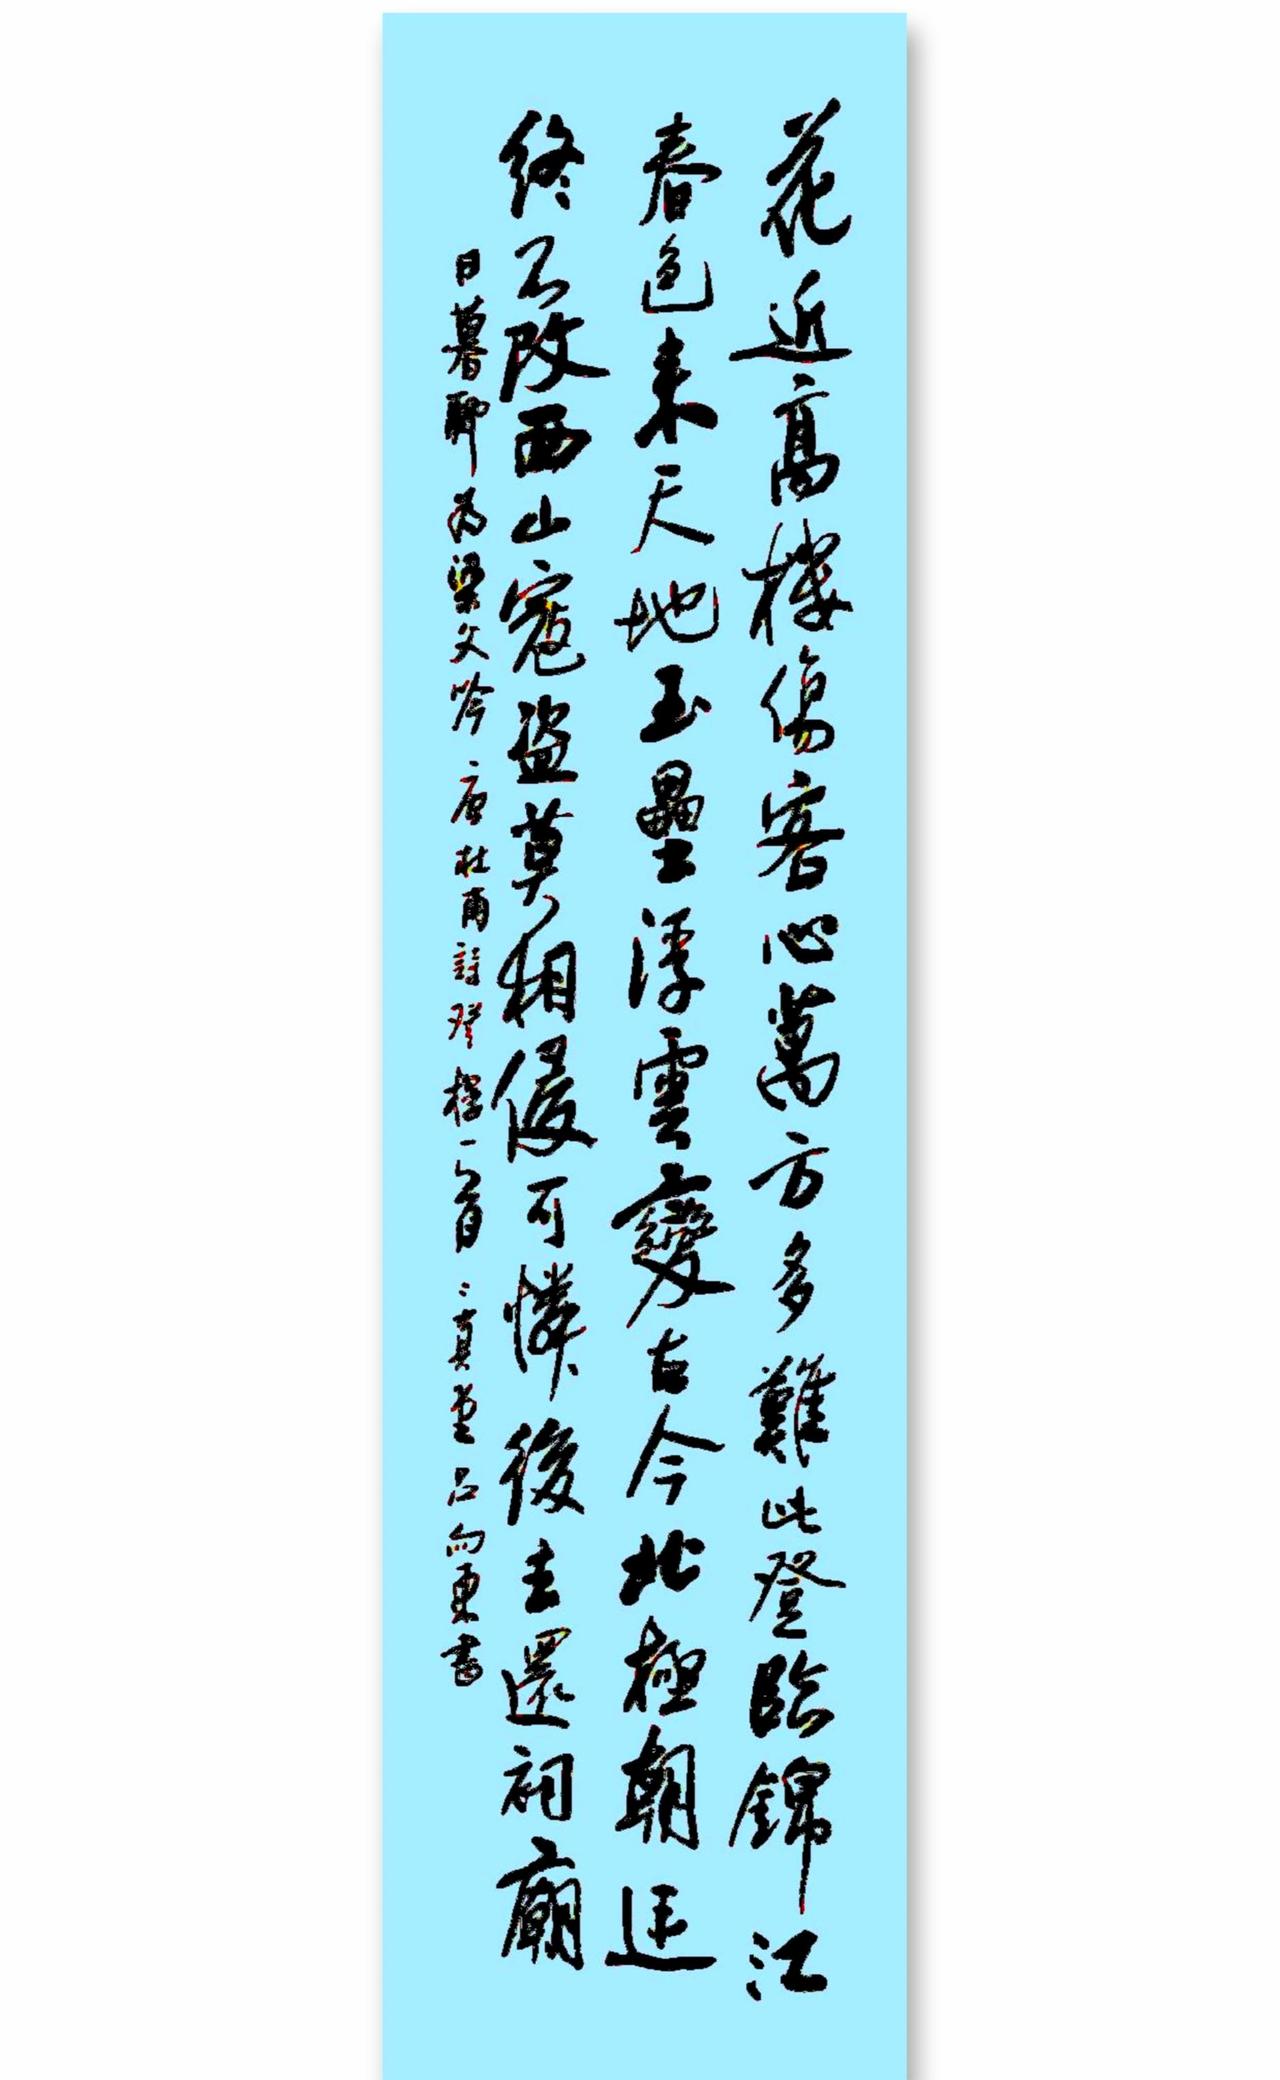 花近高樓傷客心萬方多難此登臨錦江
春色來天地玉壘浮雲變古今北極朝廷
終不改西山寇盜莫相侵可憐後主還祠廟
日暮聊為梁父吟 唐杜甫詩登樓一首 真堂呂向東書